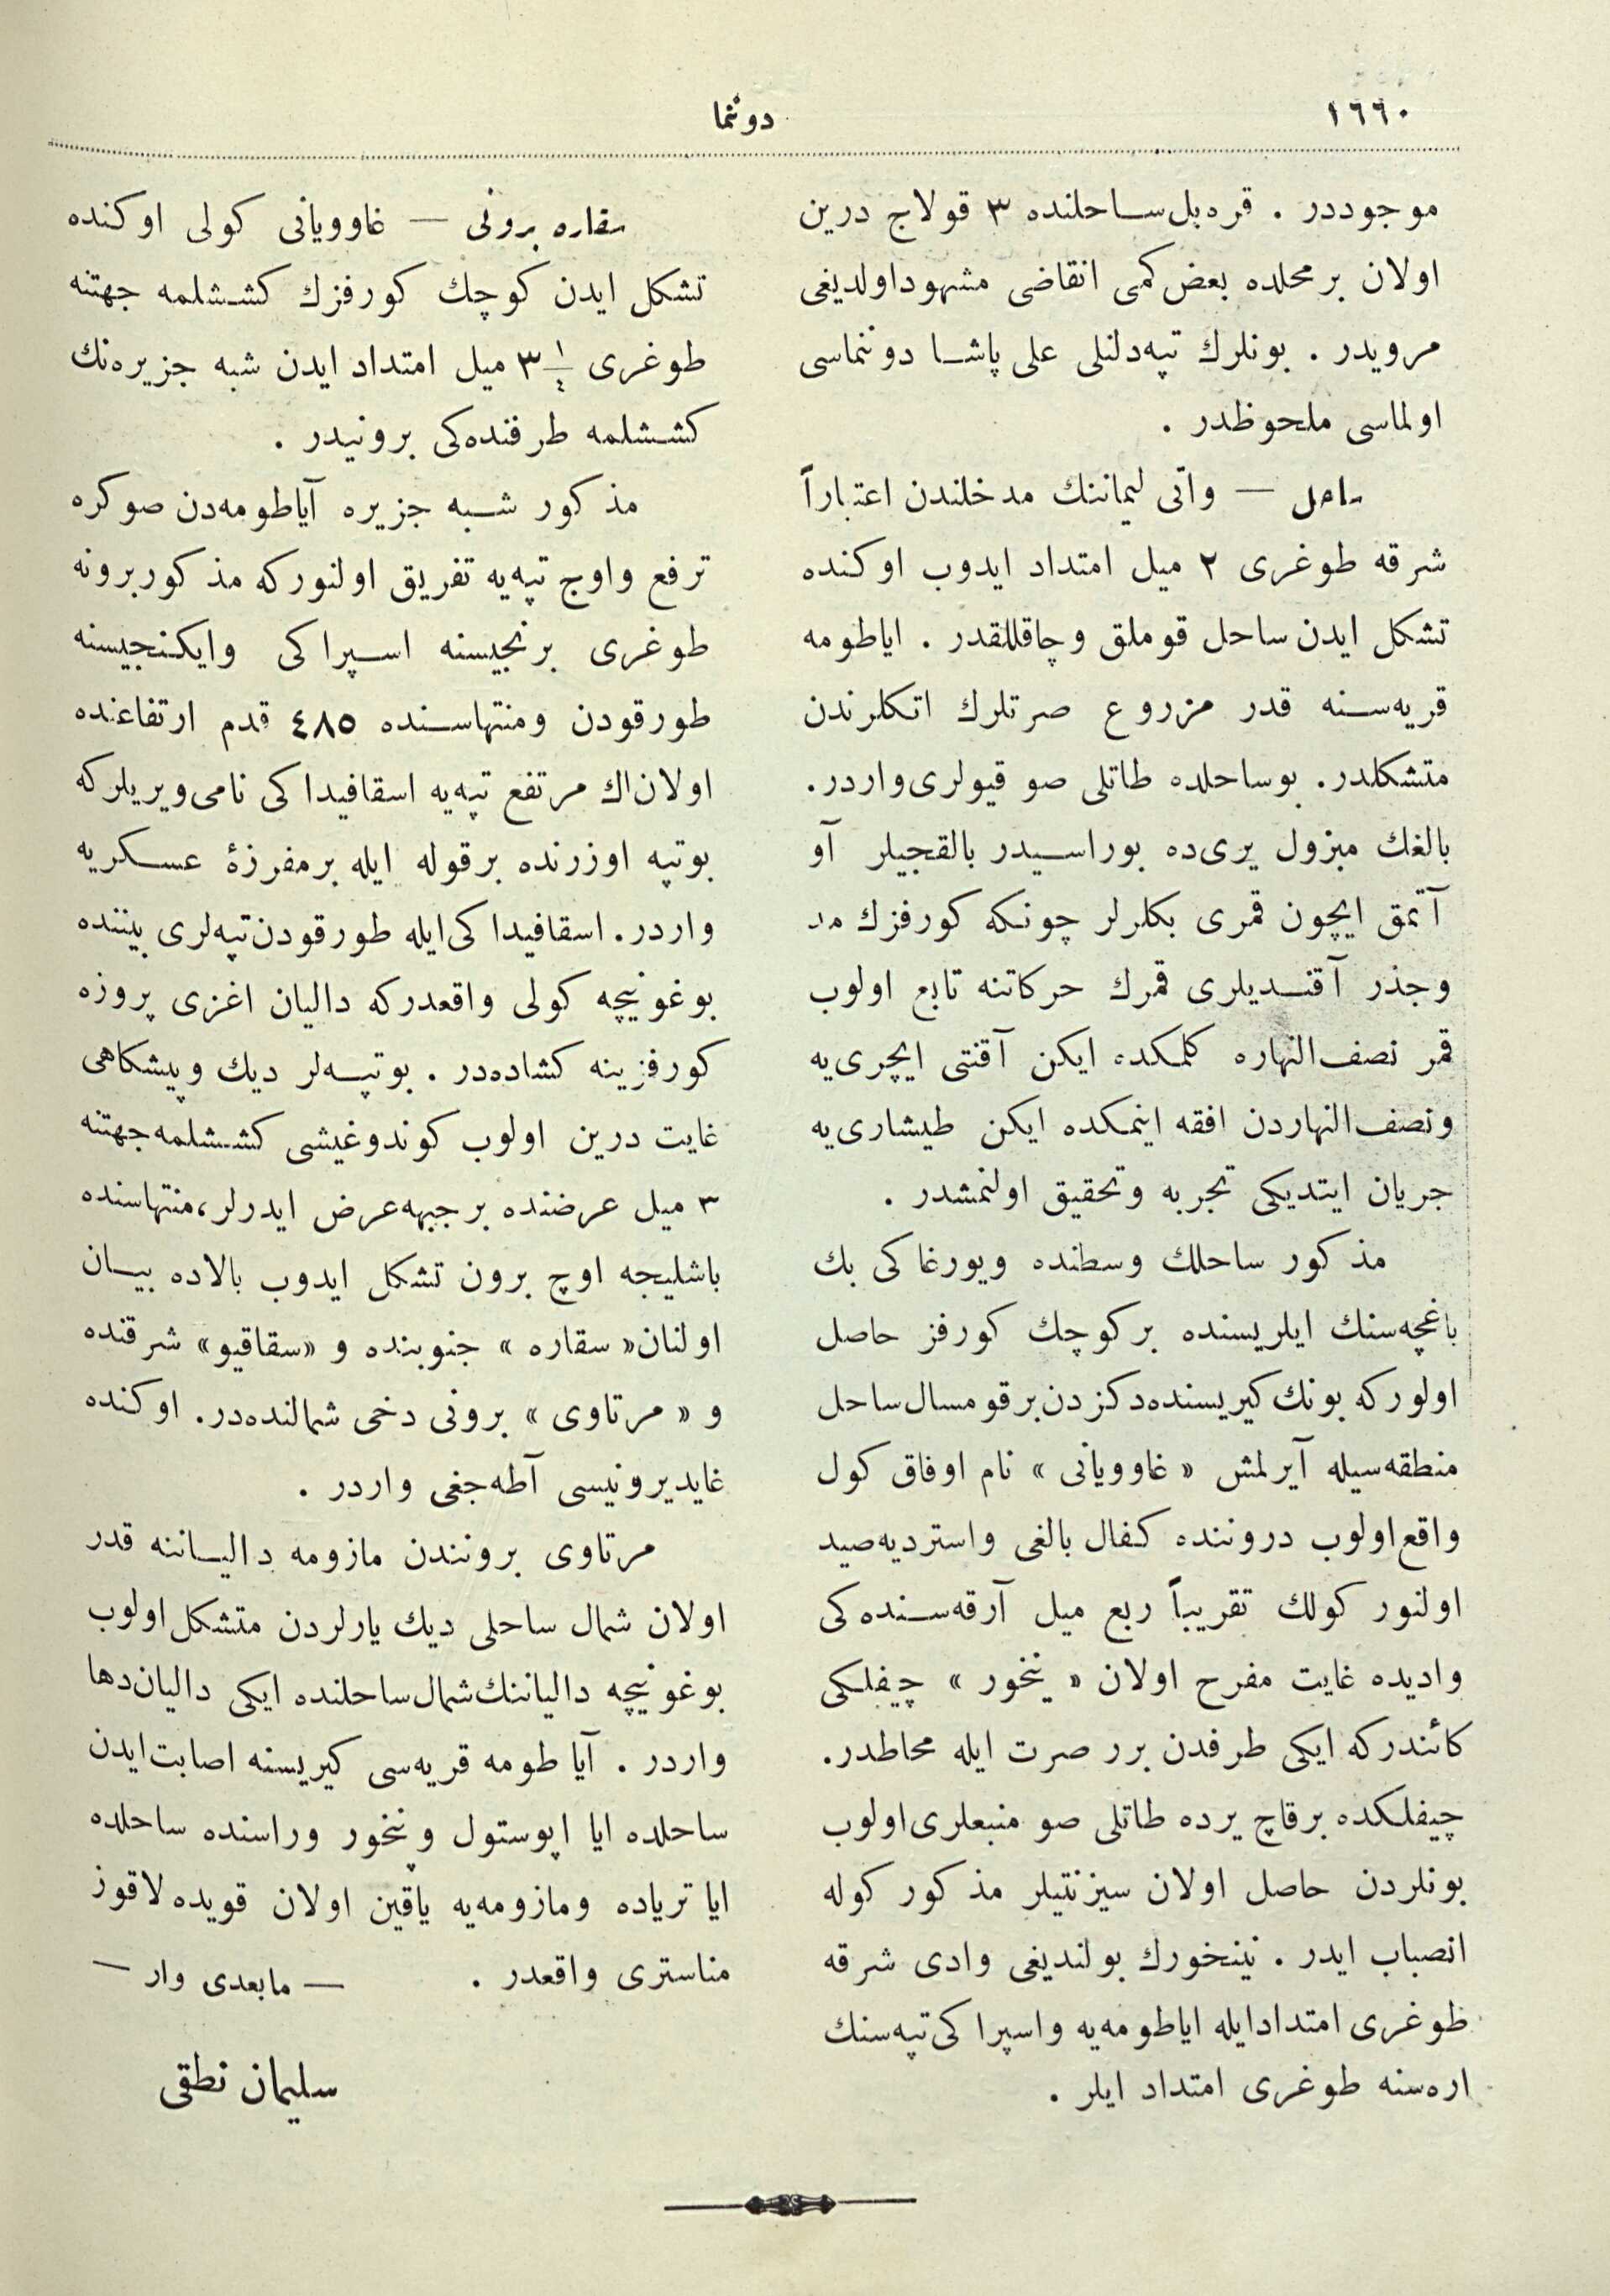 ١٦٦٠
دوننما
موجوددر . قره‌بل ساحلنده ٣ قولاج درین
اولان بر محلده بعض كمی انقاضی مشهود اولدیغی
مرویدر . بونلرك تپه‌دلنلی علی پاشا دوننماسی
اولماسی ملحوظدر .
ساحل — واتی لیماننك مدخلندن اعتباراً
شرقه طوغری ٢ میل امتداد ایدوب اوكنده
تشكل ایدن ساحل قوملق وچاقللقدر . ایاطومه
قریه‌سنه قدر مزروع صرتلرك اتكلرندن
متشكلدر. بوساحلده طاتلی صو قیولری واردر.
بالغك مبزول یری‌ده بوراسیدر بالقجیلر آو
آتمق ایچون قمری بكلرلر چونكه كورفزك مد
وجذر آقندیلری قمرك حركاتنه تابع اولوب
قمر نصف‌النهاره كلمكده ایكن آقنتی ایچری‌یه
ونصف‌النهاردن افقه اینمكده ایكن طیشاری‌یه
جریان ایتدیكی تجربه وتحقیق اولنمشدر .
مذكور ساحلك وسطنده ویورغاكی بك
باغچه‌سنك ایلریسنده بر كوچك كورفز حاصل
اولوركه بونك كیریسنده‌دكزدن برقومسال ساحل
منطقه‌سیله آیرلمش « غاوویانی » نام اوفاق كول
واقع اولوب دروننده كفال بالغی واستردیه صید
اولنور كولك تقریباً ربع میل آرقه‌سنده‌كی
وادیده غایت مفرح اولان « ینخور » چیفلكی
كائندركه ایكی طرفدن برر صرت ایله محاطدر.
چیفلكده برقاچ یرده طاتلی صو منبعلری اولوب
بونلردن حاصل اولان سیزنتیلر مذكور كوله
انصباب ایدر . نینخورك بولندیغی وادی شرقه
طوغری امتدادایله ایاطومه‌یه واسپراكی تپه‌سنك
اره‌سنه طوغری امتداد ایلر .
سقاره برونی — غاوویانی كولی اوكنده
تشكل ایدن كوچك كورفزك كششلمه جهتنه
طوغری ٣ ١/٤ میل امتداد ایدن شبه جزیره‌نك
كششلمه طرفنده‌كی برونیدر .
مذكور شبه جزیره آیاطومه‌دن صوكره
ترفع واوج تپه‌یه تفریق اولنوركه مذكوربرونه
طوغری برنجیسنه اسپراكی وایكنجیسنه
طورقودن ومنتهاسنده ٤٨٥ قدم ارتفاعنده
اولان‌اك مرتفع تپه‌یه اسقافیداكی نامی‌ویریلركه
بوتپه اوزرنده برقوله ایله برمفرزهٔ عسكریه
واردر. اسقافیداكی‌ایله طورقودن‌تپه‌لری بیننده
بوغونیچه كولی واقعدركه دالیان اغزی پروزه
كورفزینه كشاده‌در . بوتپه‌لر دیك وپیشكاهی
غایت درین اولوب كوندوغیشی كششلمه‌جهتنه
٣ میل عرضنده برجبهه‌عرض ایدرلر،منتهاسنده
باشلیجه اوچ برون تشكل ایدوب بالاده بیان
اولنان« سقاره » جنوبنده و «سقاقیو» شرقنده
و « مرتاوی » برونی دخی شمالنده‌در. اوكنده
غایدیرونیسی آطه‌جغی واردر .
مرتاوی بروندن مازومه دالیاننه قدر
اولان شمال ساحلی دیك یارلردن متشكل اولوب
بوغونیچه دالیاننك‌شمال ساحلنده ایكی دالیان‌دها
واردر . آیاطومه قریه‌سی كیریسنه اصابت‌ایدن
ساحلده ایا اپوستول ونیخور وراسنده ساحلده
ایا تریاده ومازومه‌یه یاقین اولان قویده لاقوز
مناستری واقعدر .
— مابعدی وار —
سلیمان نطقی